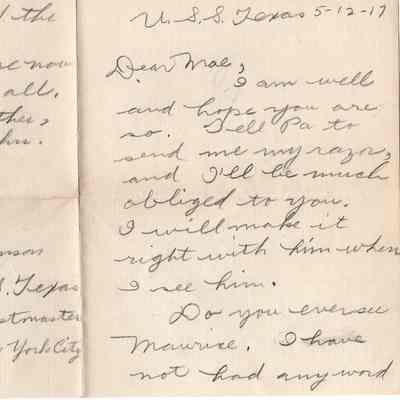 U.S.S. Texas 5-12-17
Dear Mae,
I am well
and hope you are
so. Tell Pa to
send me my razor,
and I'll be much
obliged to you.
I will make it
right with him when
I see him.
Do you ever see
Maurice. I have
not had any word
the
now
all.
S. Texas
York City